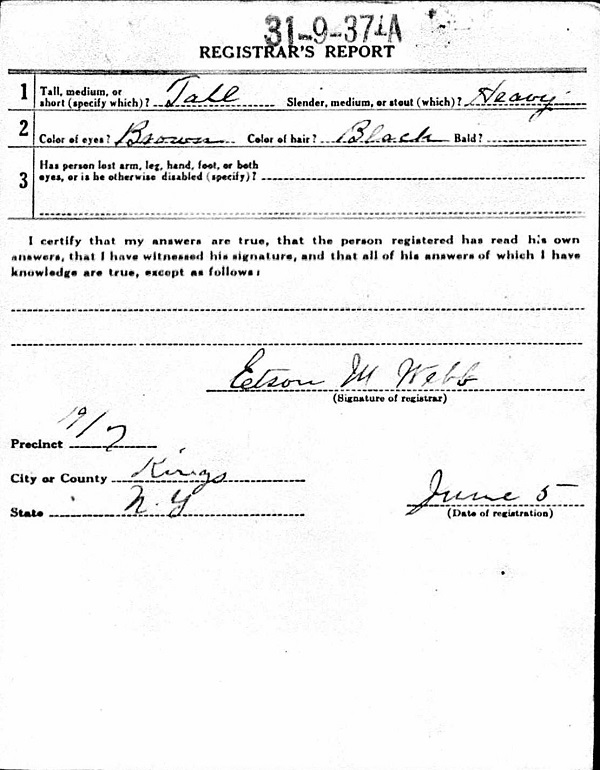 31-9-371A
REGISTRAR'S REPORT
1 Tall, medium, or short (specify which)? Tall Slender, medium, or stout (which)? Heavy
2 Color of eyes? Brown Color of hair? Black Bald?
3 Has person lost arm, leg, hand, foot, or both
eyes, or is he otherwise disabled (specify)?
I certify that my answers are true, that the person registered has read his own
answers, that I have witnessed his signature, and that all of his answers of which I have
knowledge are true, except as follows:
M Webb
(Signature of registrar)
Precinct 19/7
City or County Kings
State N.Y
June 5
(Date of registration)